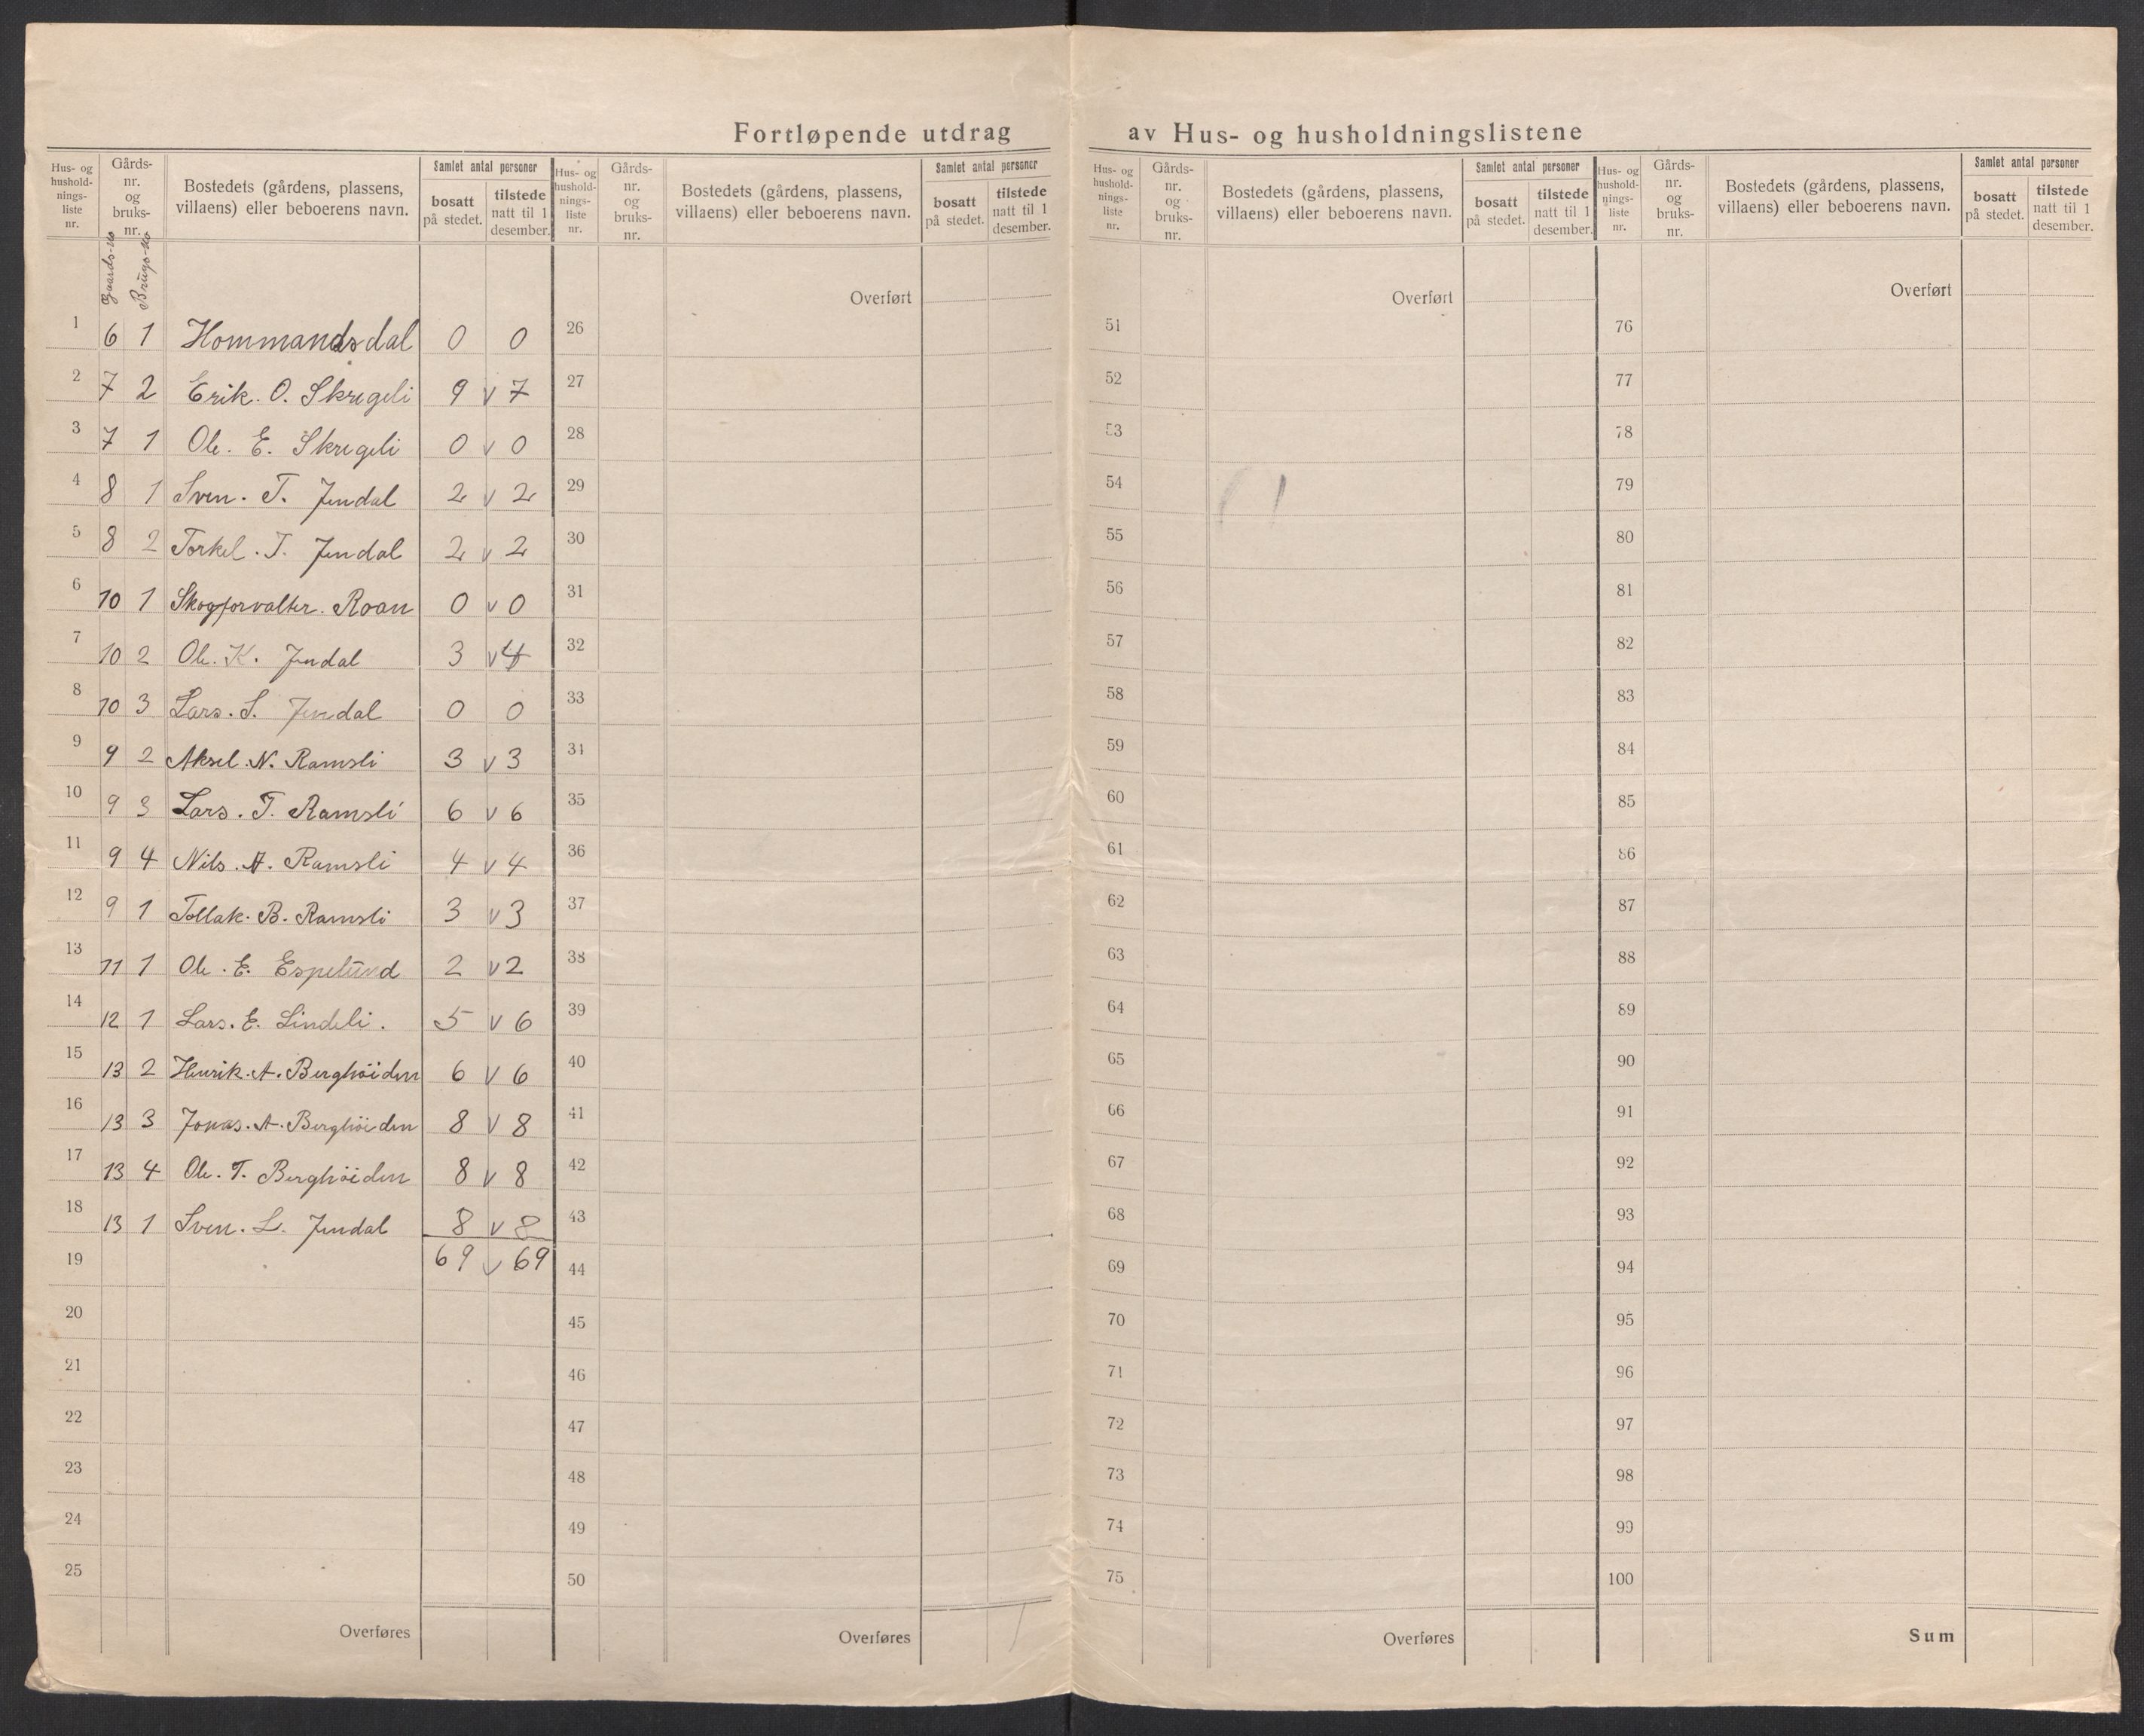 Fortløpende utdrag av Hus- og husholdningslistene
Hus- og hushold-nings-liste nr. Gårds-nr. og bruks-nr. Bostedets (gårdens, plassens, villaens) eller beboerens navn. Samlet antal personer bosatt på stedet. tilstede natt til 1 desember.
Hus- og hushold-nings-liste nr. Gårds-nr. og bruks-nr. Bostedets (gårdens, plassens, villaens) eller beboerens navn. Samlet antal personer bosatt på stedet. tilstede natt til 1 desember.
Hus- og hushold-nings-liste nr. Gårds-nr. og bruks-nr. Bostedets (gårdens, plassens, villaens) eller beboerens navn. Samlet antal personer bosatt på stedet. tilstede natt til 1 desember.
Hus- og hushold-nings-liste nr. Gårds-nr. og bruks-nr. Bostedets (gårdens, plassens, villaens) eller beboerens navn. Samlet antal personer bosatt på stedet. tilstede natt til 1 desember.
Gaards-no Brugs-no
Overført Overført Overført
1 6 1 Hommandsdal 0 0
2 7 2 Erik. O. Skregeli 9 v 7
3 7 1 Ole. E. Skregeli 0 v 0
4 8 1 Sven. T. Jendal 2 v 2
5 8 2 Torkel. T. Jendal 2 v 2
6 10 1 Skogforvalter. Roan 0 v 0
7 10 2 Ole. K. Jendal 3 v 4
8 10 3 Lars. S. Jendal 0 0
9 9 2 Aksel. N. Ramsli 3 v 3
10 9 3 Lars. T. Ramsli 6 v 6
11 9 4 Nils. A. Ramsli 4 v 4
12 9 1 Tollak. B. Ramsli 3 v 3
13 11 1 Ole. E. Espelund 2 v 2
14 12 1 Lars. E. Lindeli. 5 v 6
15 13 2 Henrik. A. Berghöiden 6 v 6
16 13 3 Jonas. A. Berghöiden 8 v 8
17 13 4 Ole. T. Berghöiden 8 v 8
18 13 1 Sven. L. Jendal 8 v 8
19 69 v 69
20
21
22
23
24
25
Overføres
26
27
28
29
30
31
32
33
34
35
36
37
38
39
40
41
42
43
44
45
46
47
48
49
50
Overføres
51
52
53
54
55
56
57
58
59
60
61
62
63
64
65
66
67
68
69
70
71
72
73
74
75
Overføres
76
77
78
79
80
81
82
83
84
85
86
87
88
89
90
91
92
93
94
95
96
97
98
99
100
Sum